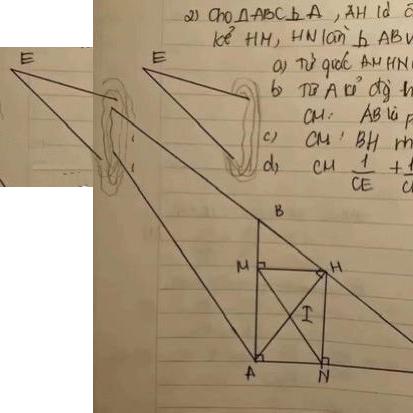 2) Cho △ABC ⊥ A, AH là
kẻ HM, HN lần ⊥ AB v
a) Tứ giác AMHN
b) Từ A kẻ đg
CM: AB là p
c) CM: BH
d) CM 1/CE + 1
E
E
B
M
H
I
A
N